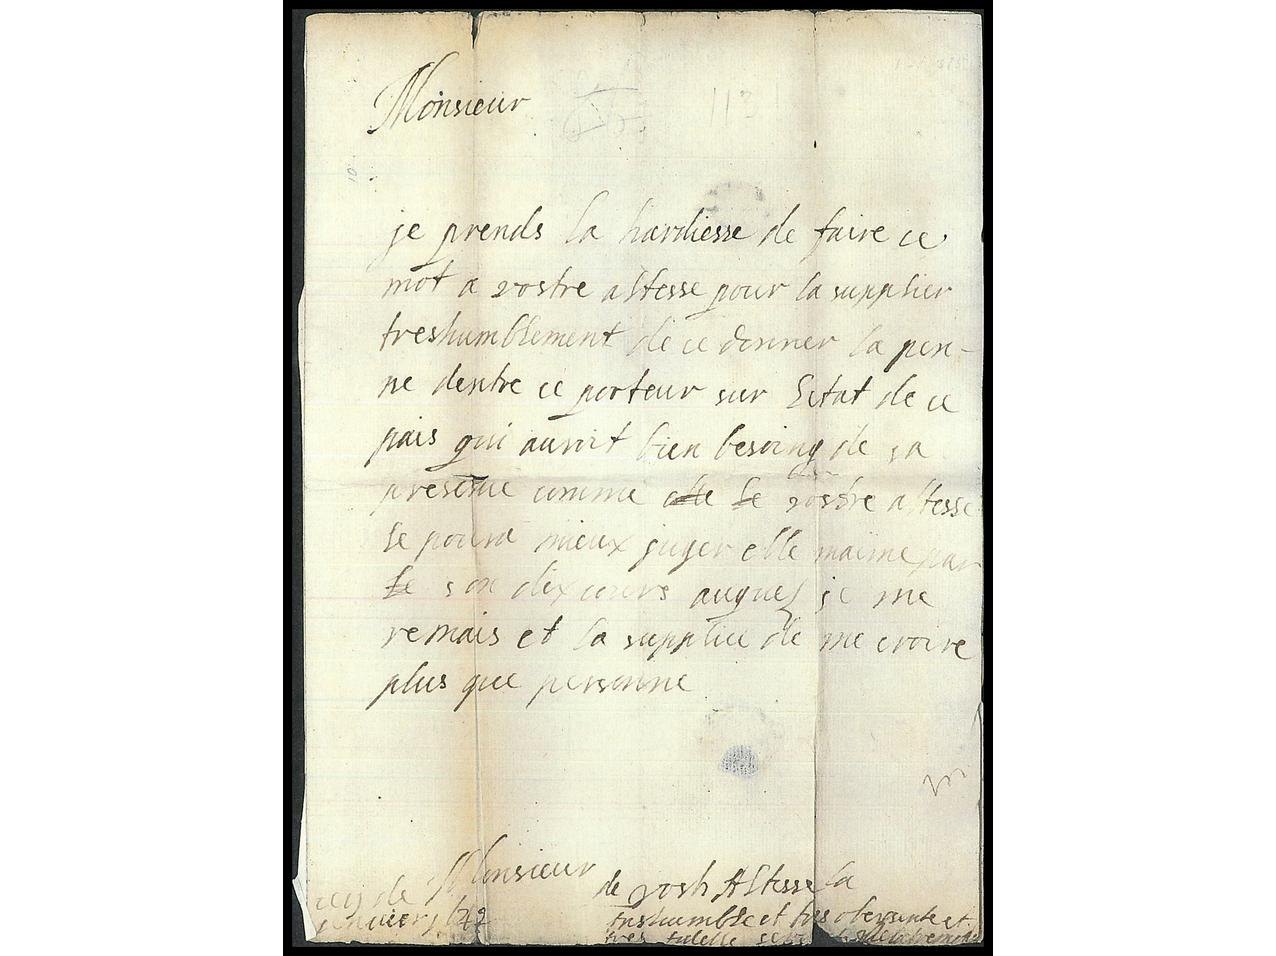 Monsieur
113
10
je prends la hardiesse de faire ce
mot a vostre altesse pour la supplier
treshumblement de ce donner la pen-
ne dentre ce porteur sur lestat de ce
pais qui auroit bien besoing de sa
presence comme elle le vostre altesse
le poura mieux juger elle maime par
le son dixcours auquel je me
remais et la supplie de me croire
plus que personne
Monsieur
de vostr Altesse la
treshumble et tres obeissante et
tres fidelle